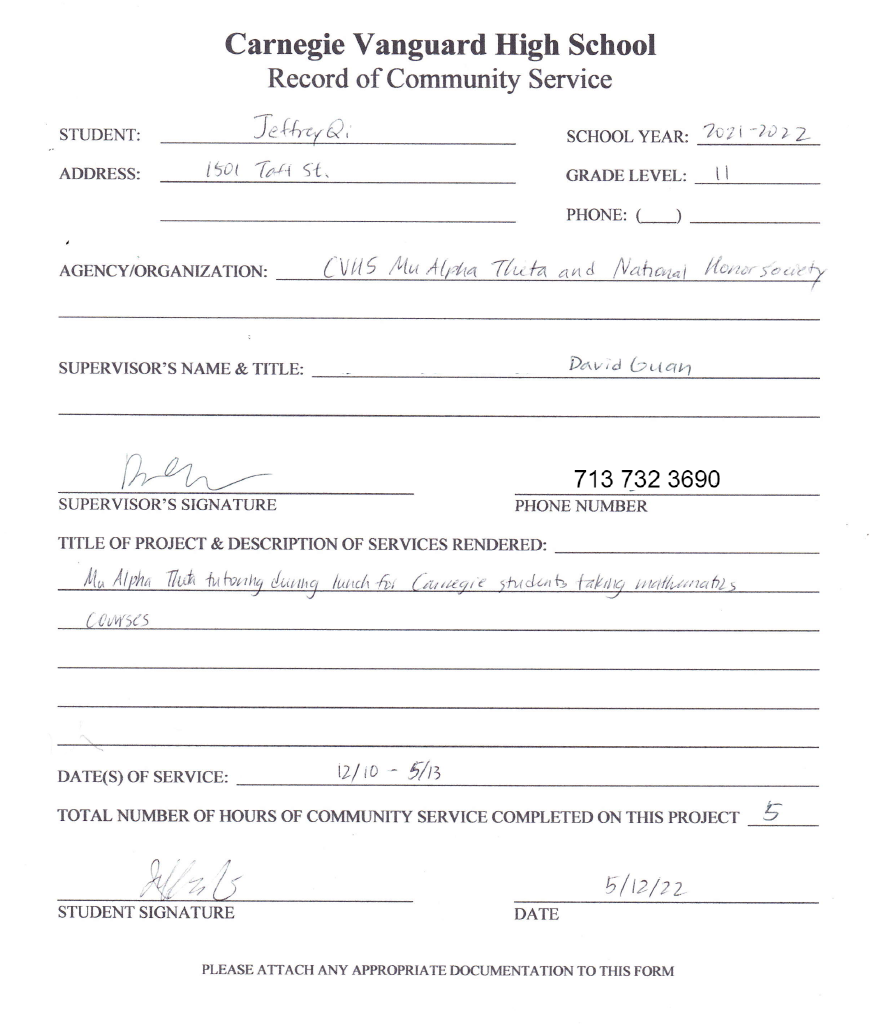 Carnegie Vanguard High School
Record of Community Service
STUDENT: Jeffrey Qi SCHOOL YEAR: 2021-2022
ADDRESS: 1501 Taft St. GRADE LEVEL: 11
PHONE: (___)
AGENCY/ORGANIZATION: CVHS Mu Alpha Theta and National Honor Society
SUPERVISOR'S NAME & TITLE: David Guan
713 732 3690
SUPERVISOR'S SIGNATURE PHONE NUMBER
TITLE OF PROJECT & DESCRIPTION OF SERVICES RENDERED:
Mu Alpha Theta tutoring during lunch for Carnegie students taking mathematics
courses
DATE(S) OF SERVICE: 12/10 - 5/13
TOTAL NUMBER OF HOURS OF COMMUNITY SERVICE COMPLETED ON THIS PROJECT 5
5/12/22
STUDENT SIGNATURE DATE
PLEASE ATTACH ANY APPROPRIATE DOCUMENTATION TO THIS FORM